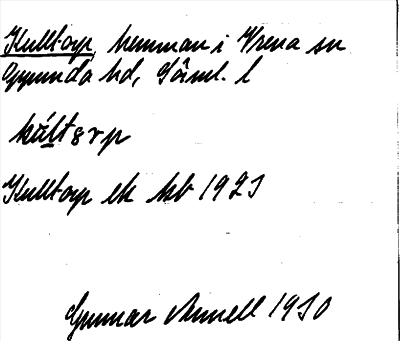 Kulltorp, hemman i Vrena sn
Oppunda hd, Söml. l
kùltərp
Kulltorp ek kb 1921
Gunnar Annell 1930